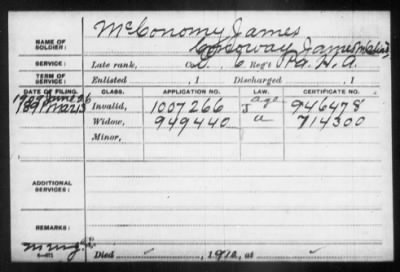 McConomy James
NAME OF SOLDIER: Conoway, James (Alias)
SERVICE: Late rank, Co. 6 Reg't Pa. H. A.
TERM OF SERVICE: Enlisted , 1 Discharged , 1
DATE OF FILING. CLASS. APPLICATION NO. LAW. CERTIFICATE NO.
1909 June 26 Invalid, 1007266 J age 946478
1891 Mar 13 Widow, 949440 a 714300
Minor,
ADDITIONAL SERVICES:
REMARKS:
Died , 1910, at